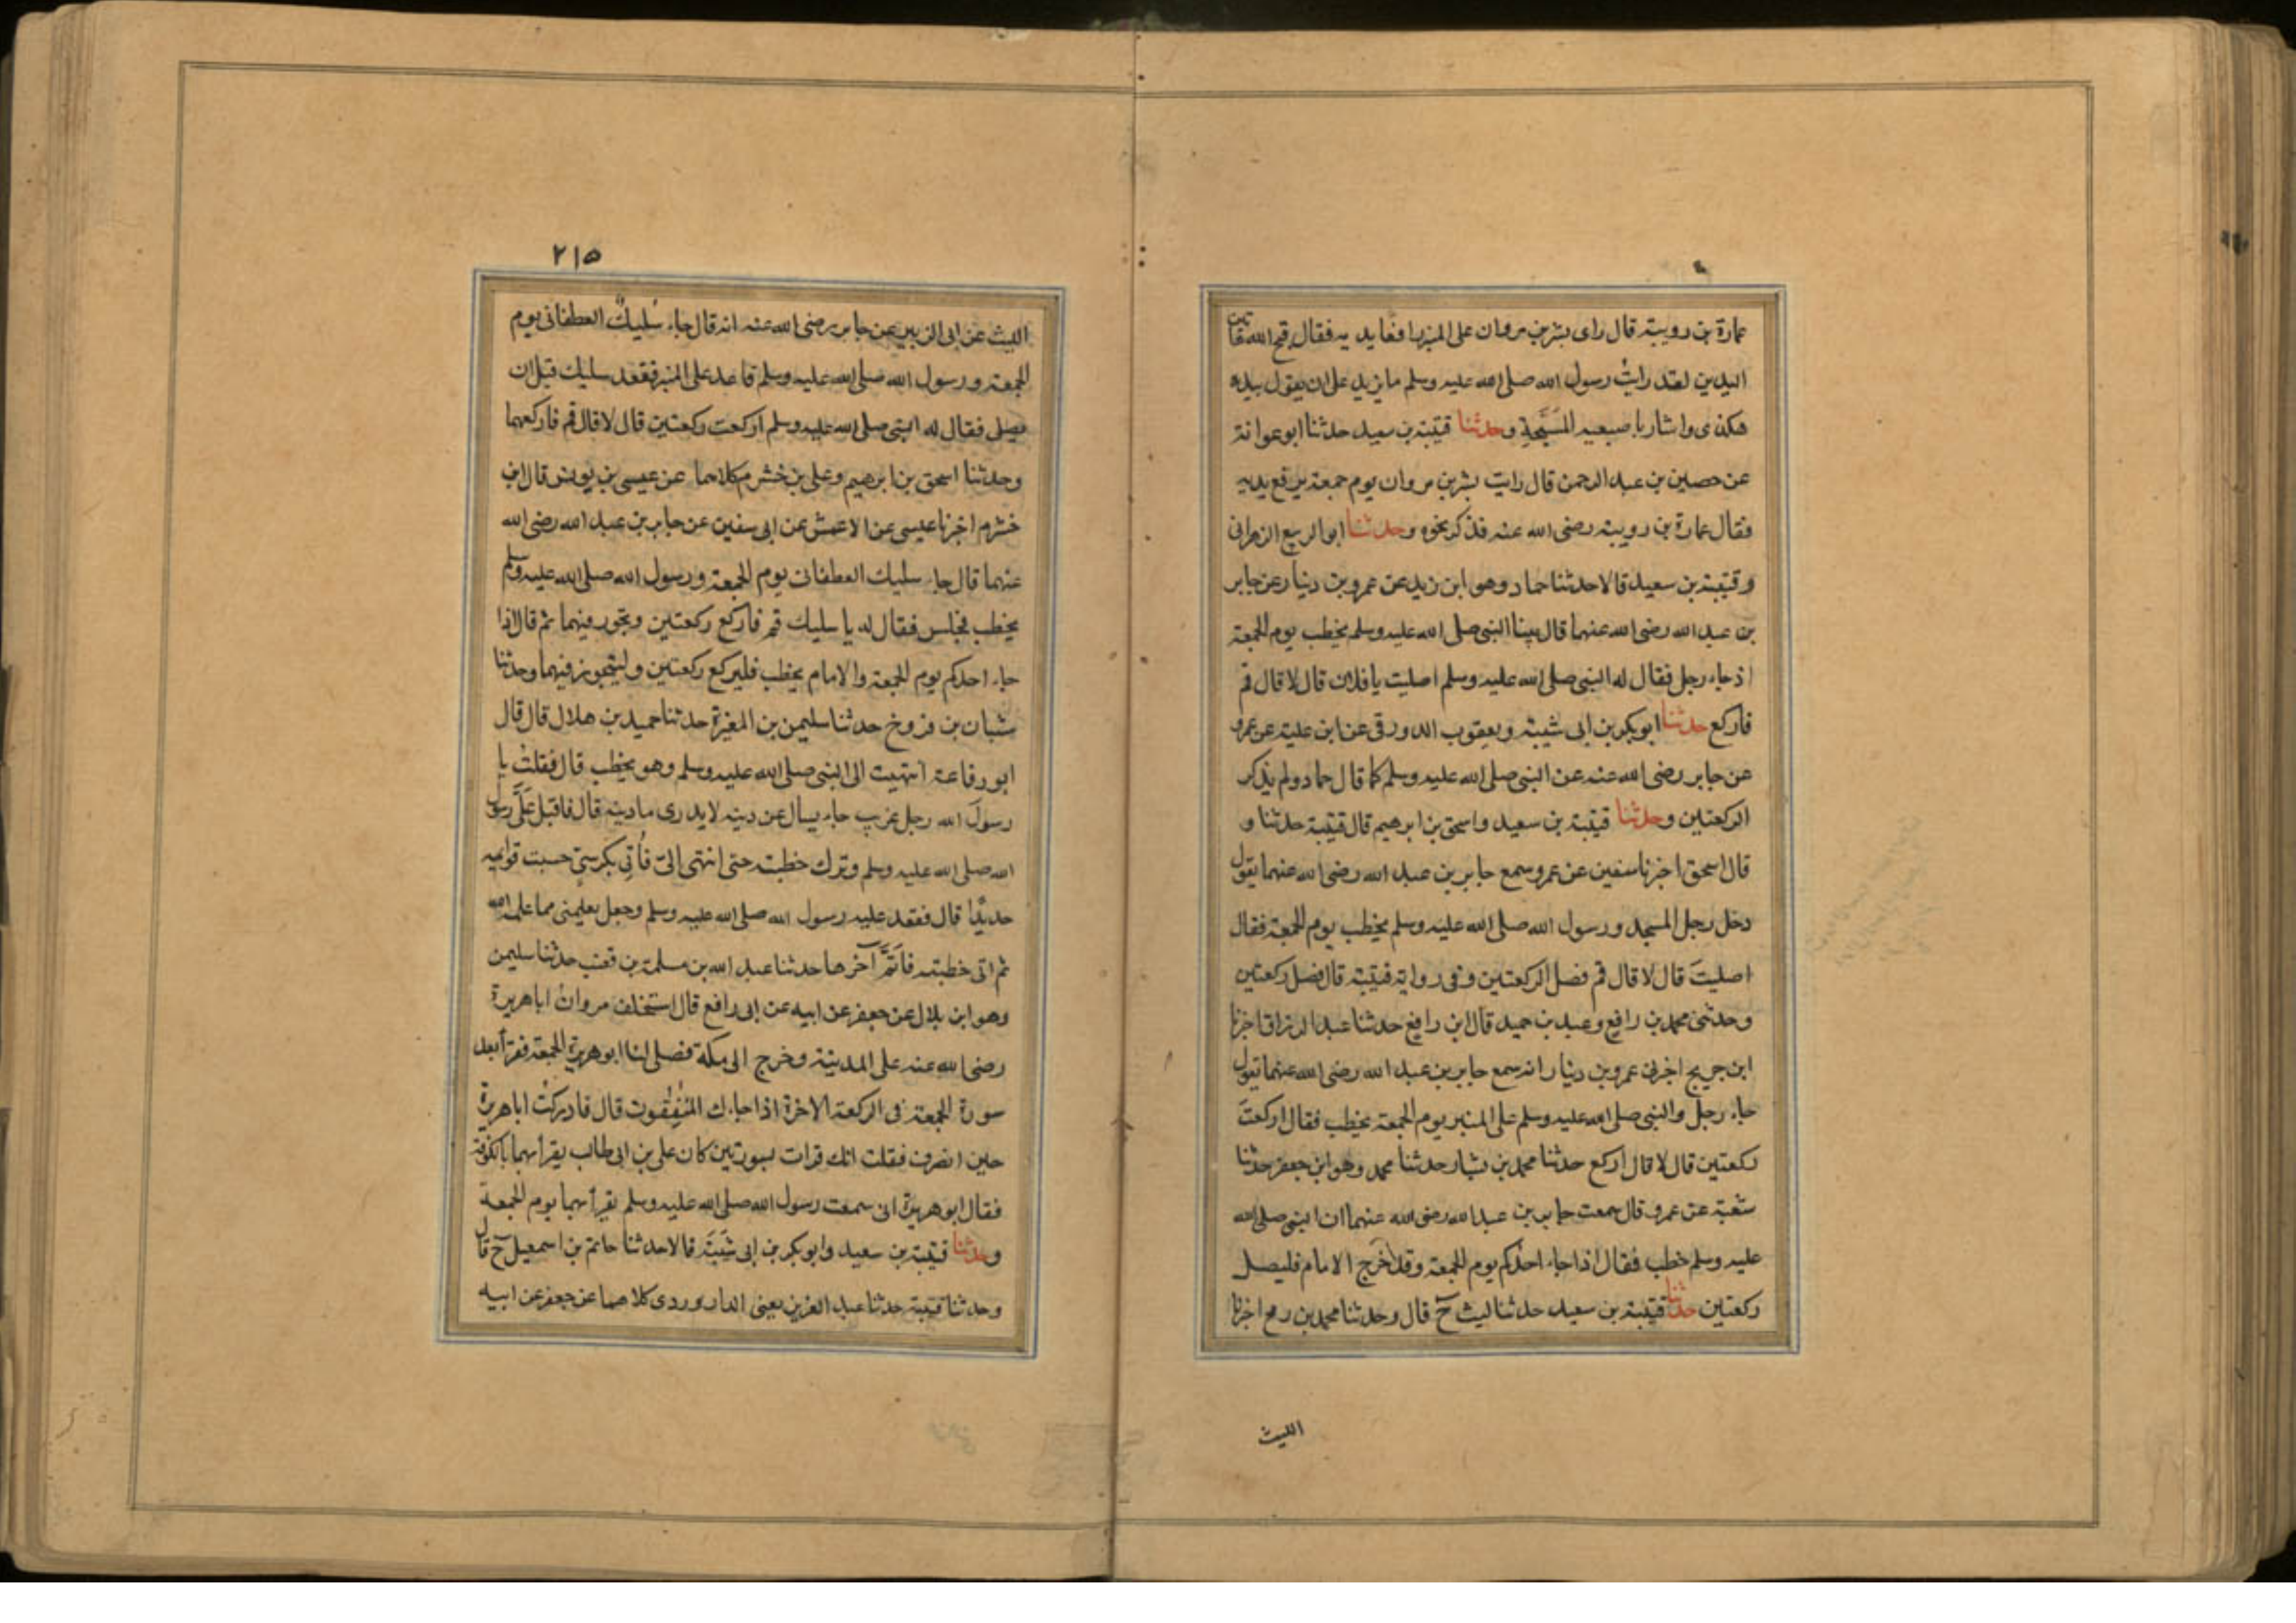 عمارة بن رويبة قال راى بشر بن مروان على المنبر رافعا يديه فقال قبح الله هاتين
اليدين لقد رايتُ رسول الله صلى الله عليه وسلم ما يزيد على ان يقول بيده
هكذى واشار باصبعيه المسَبِّحةِ وحدثنا قتيبة بن سعيد حدثنا ابو عوانة
عن حصين بن عبد الرحمن قال رايت بشر بن مروان يوم جمعة يرفع يديه
فقال عمارة بن رويبة رضى الله عنه فذكر نحوه وحدثنا ابو الربيع الزهرانى
وقتيبة بن سعيد قالا حدثنا حماد وهو ابن زيد عن عمرو بن دينار عن جابر
بن عبد الله رضى الله عنهما قال بينا النبى صلى الله عليه وسلم يخطب يوم الجمعة
اذ جاء رجل فقال له النبى صلى الله عليه وسلم اصليت يا فلان قال لا قال قم
فاركع حدثنا ابو بكر بن ابى شيبة ويعقوب الدورقى عن ابن علية عن عمرو
عن جابر رضى الله عنه عن النبى صلى الله عليه وسلم كما قال حماد ولم يذكر
الركعتين وحدثنا قتيبة بن سعيد واسحق بن ابرهيم قال قتيبة حدثنا و
قال اسحق اخبرنا سفين عن عمرو سمع جابر بن عبد الله رضى الله عنهما يقول
دخل رجل المسجد ورسول الله صلى الله عليه وسلم يخطب يوم الجمعة فقال
اصليتَ قال لا قال قم فصل الركعتين وفى رواية قتيبة قال فصل ركعتين
وحدثنى محمد بن رافع وعبد بن حميد قال ابن رافع حدثنا عبد الرزاق اخبرنا
ابن جريج اخبرنى عمرو بن دينار انه سمع جابر بن عبد الله رضى الله عنهما يقول
جاء رجل والنبى صلى الله عليه وسلم على المنبر يوم الجمعة يخطب فقال اركعتَ
ركعتين قال لا قال اركع حدثنا محمد بن بشار حدثنا محمد وهو ابن جعفر حدثنا
شعبة عن عمرو قال سمعت جابر بن عبد الله رضى الله عنهما ان النبى صلى الله
عليه وسلم خطب فقال اذا جاء احدكم يوم الجمعة وقد خرج الامام فليصل
ركعتين حدثنا قتيبة بن سعيد حدثنا ليث ح قال وحدثنا محمد بن رمح اخبرنا
الليث
٢١٥
الليث عن ابى الزبير عن جابر رضى الله عنه انه قال جاء سُليكٌ الغطفانى يوم
الجمعة ورسول الله صلى الله عليه وسلم قاعد على المنبر فقعد سليك قبل ان
يصلى فقال له النبى صلى الله عليه وسلم اركعت ركعتين قال لا قال قم فاركعهما
وحدثنا اسحق بن ابرهيم وعلى بن خشرم كلاهما عن عيسى بن يونس قال ابن
خشرم اخبرنا عيسى عن الاعمش عن ابى سفين عن جابر بن عبد الله رضى الله
عنهما قال جاء سليك الغطفانى يوم الجمعة ورسول الله صلى الله عليه وسلم
يخطب فجلس فقال له يا سليك قم فاركع ركعتين وتجوز فيهما ثم قال اذا
جاء احدكم يوم الجمعة والامام يخطب فليركع ركعتين وليتجوز فيهما وحدثنا
شبان بن فروخ حدثنا سليمن بن المغيرة حدثنا حميد بن هلال قال قال
ابو رفاعة انتهيت الى النبى صلى الله عليه وسلم وهو يخطب قال فقلتُ يا
رسولَ الله رجل غريب جاء يسال عن دينه لا يدرى ما دينه قال فاقبل عَلَىَّ رسول
الله صلى الله عليه وسلم وترك خطبته حتى انتهى الىّ فأُتِى بكرسىّ حسبت قوايمه
حديدًا قال فقعد عليه رسول الله صلى الله عليه وسلم وجعل يعلمنى مما علمه الله
ثم اتى خطبته فاتَمَّ آخرها حدثنا عبد الله بن مسلمة بن قعنب حدثنا سليمن
وهو ابن بلال عن جعفر عن ابيه عن ابى رافع قال استخلف مروانُ ابا هريرة
رضى الله عنه على المدينة وخرج الى مكة فصلى لنا ابو هريرة الجمعة فقرأ بعد
سورة الجمعة فى الركعة الاخرة اذا جاءك المنٰفِقُون قال فادركتُ ابا هريرة
حين انصرف فقلت انك قرات بسورتين كان على بن ابى طالب يقرأ بهما بالكوفة
فقال ابو هريرة انى سمعت رسول الله صلى الله عليه وسلم يقرأ بهما يوم الجمعة
وحدثنا قتيبة بن سعيد وابو بكر بن ابى شَيبَةَ قالا حدثنا حاتم بن اسمعيل ح قال
وحدثنا قتيبة حدثنا عبد العزيز يعنى الدراوردى كلاهما عن جعفر عن ابيه